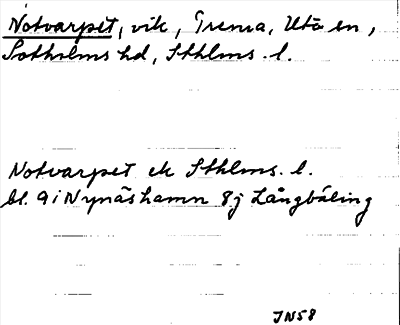 Notvarpet, vik, Trema, Utö sn,
Sotholms hd, Sthlms. l.
Notvarpet ek Sthlms. l.
bl. 9 i Nynäshamn 8j Långbäling
JN58